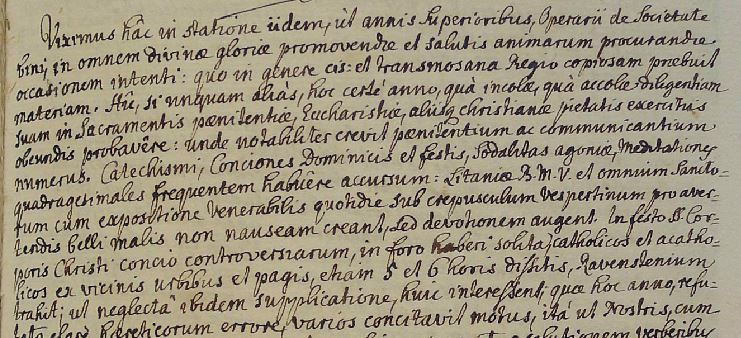 Viximus hâc in statione iidem, ut annis superioribus, Operarii de Societate
bini, in omnem divinæ gloriæ promovendæ et salutis animarum procurandæ
occasionem intenti: quo in genere cis: et transmosana Regio copiosam præbuit
materiam. Hìc, si unquam aliàs, hoc certè anno, quà incolæ, quà accolæ diligentiam
suam in Sacramentis pænitentiæ, Eucharistiæ, aliisq. christianæ pietatis exercitiis
obeundis probavêre: unde notabiliter crevit pænitentium ac communicantium
numerus. Catechismi, Conciones Dominicis et festis, sodalitas agoniæ, Meditationes
quadragesimales frequentem habuêre accursum: Litaniæ B. M. V. et omnium Sancto-
rum cum expositione Venerabilis quotidie sub crepusculum vespertinum pro aver-
tendis belli malis non nauseam creant, sed devotionem augent. In festo SS. Cor-
poris Christi concio controversiarum, in foro haberi solita, catholicos et acatho-
licos ex vicinis urbibus et pagis, etiam 5 et 6 horis dissitis, Ravenstenium
trahit; ut neglectâ ibidem supplicatione, huic interessent; quæ hoc anno, refu-
tato hæreticorum errore, varios concitavit motus, ità ut Nostris, cum
verberibus